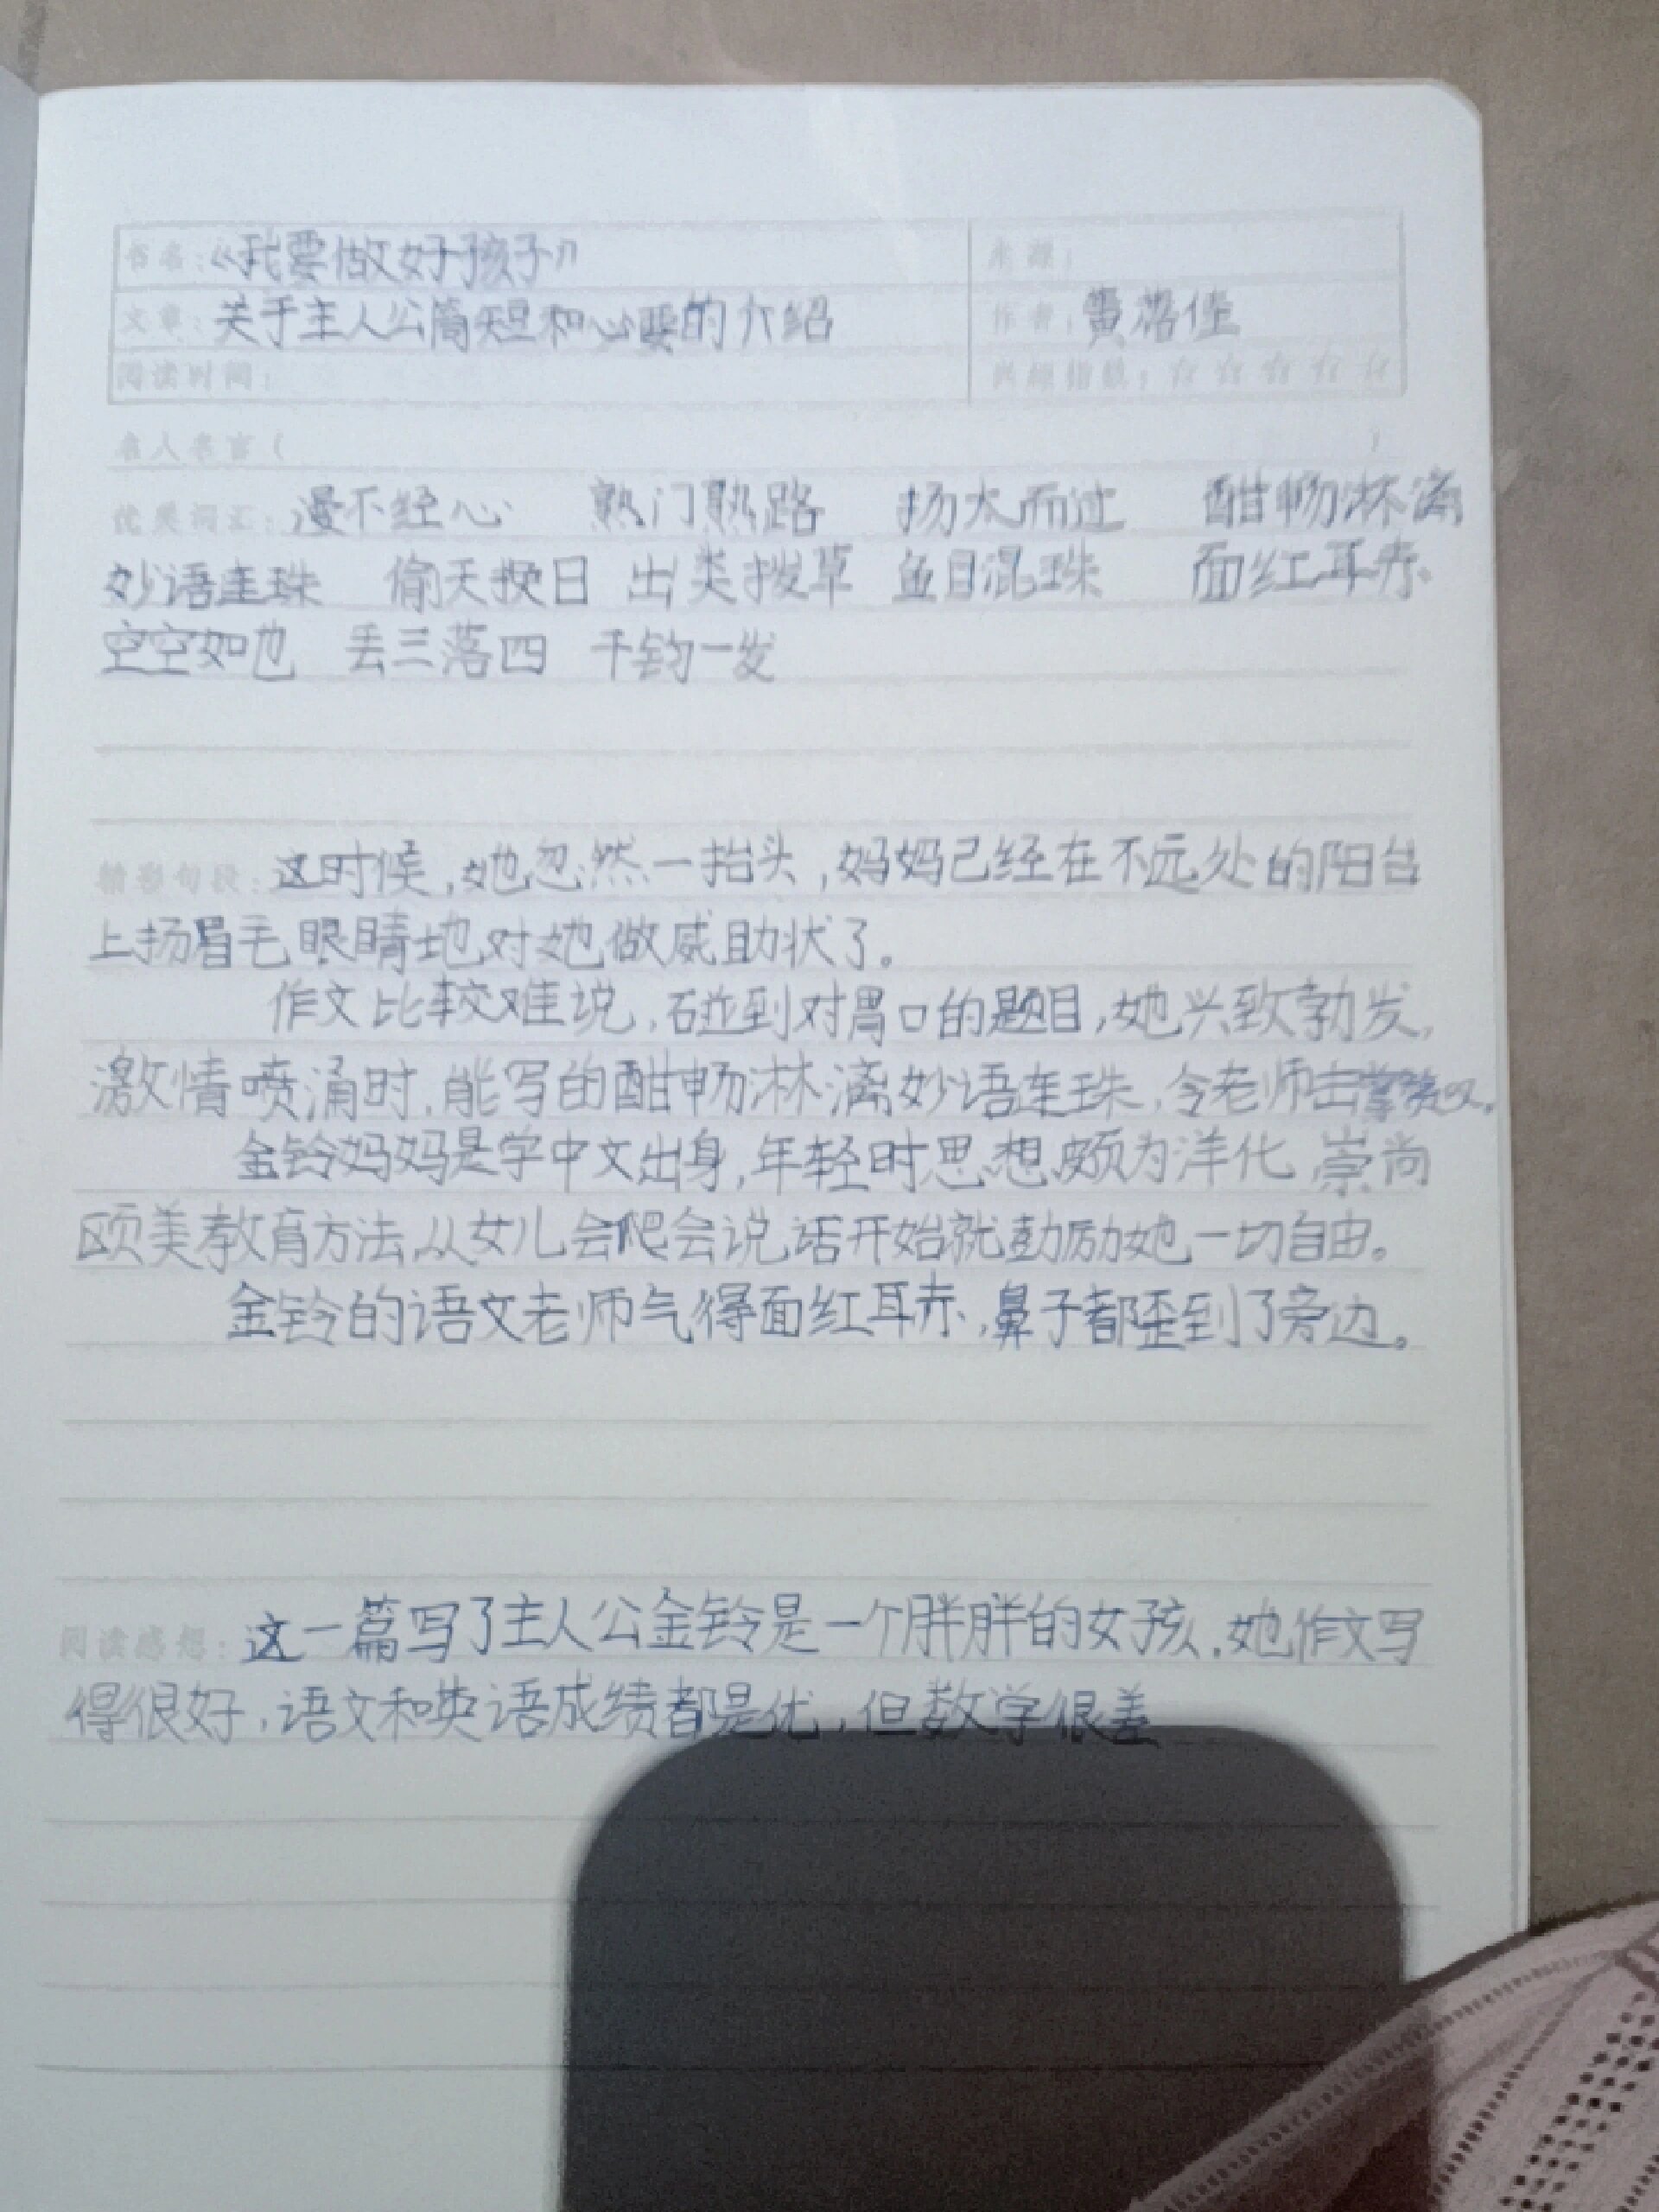 书名：《我要做好孩子》 来源：
文章：关于主人公简短和心要的介绍 作者：黄蓓佳
阅读时间： 兴趣指数：☆☆☆☆☆
名人名言（ ）
优美词汇：漫不经心 熟门熟路 扬长而过 酣畅淋漓
妙语连珠 偷天换日 出类拨草 鱼目混珠 面红耳赤
空空如也 丢三落四 千钧一发
精彩句段：这时候，她忽然一抬头，妈妈已经在不远处的阳台
上扬眉毛眼睛地对她做威助状了。
作文比较难说，碰到对胃口的题目，她兴致勃发，
激情喷涌时，能写的酣畅淋漓妙语连珠，令老师击掌赞叹。
金铃妈妈是学中文出身，年轻时思想颇为洋化，崇尚
欧美教育方法，从女儿会爬会说话开始就鼓励她一切自由。
金铃的语文老师气得面红耳赤，鼻子都歪到了旁边。
阅读感想：这一篇写了主人公金铃是一个胖胖的女孩，她作文写
得很好，语文和英语成绩都是优，但数学很差